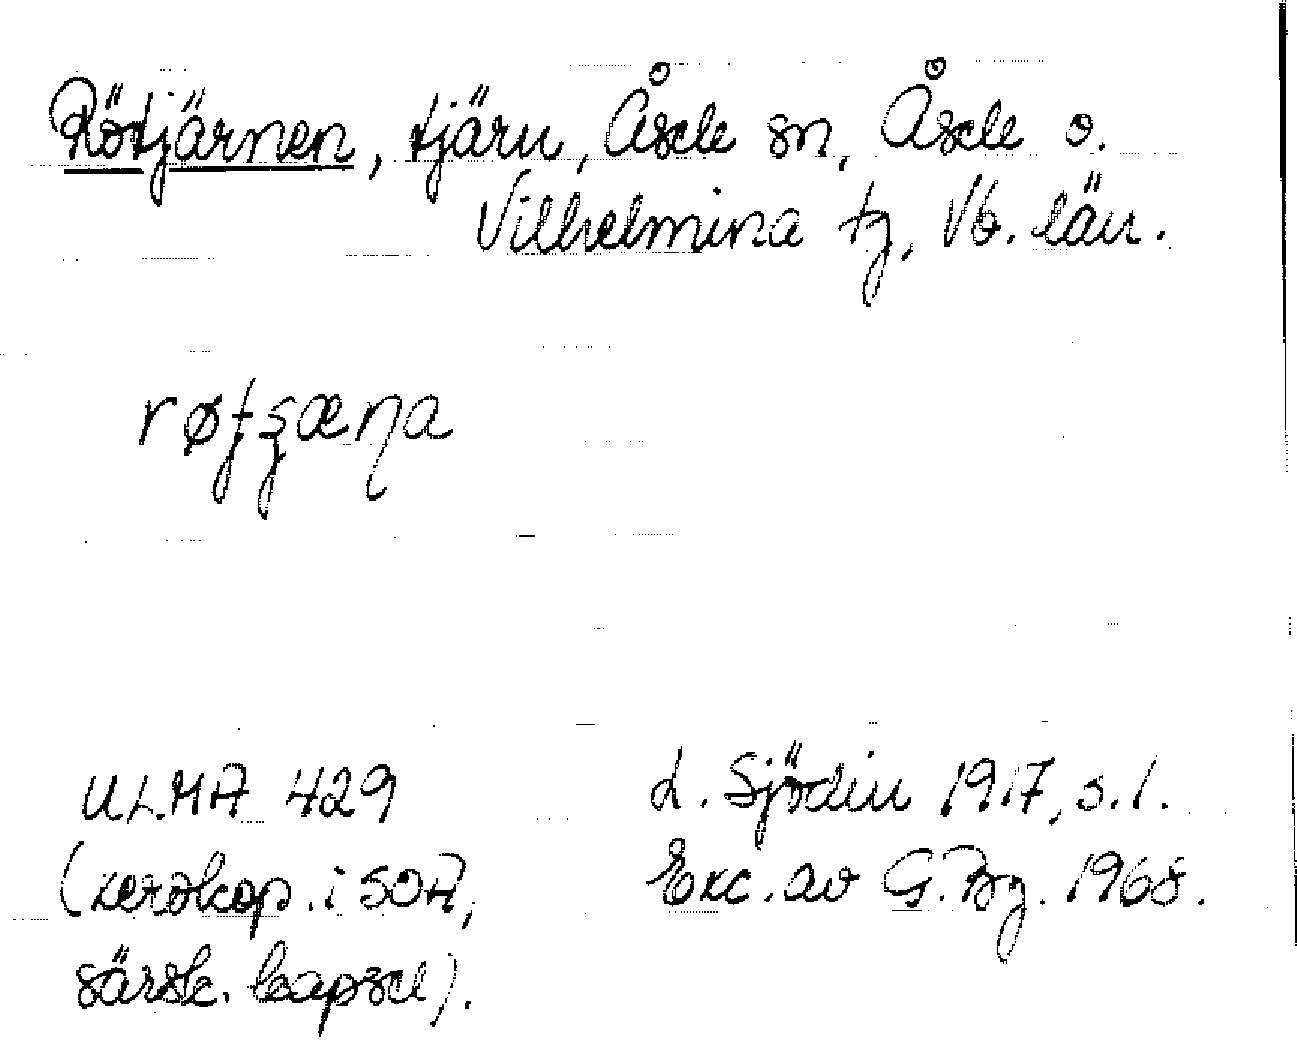 Rötjärnen, tjärn, Åsele sn, Åsele o.
Vilhelmina tg, Vb. län.
røʈʂæɳa
ULMA 429
(xerokop. i SOA,
särsk. kapsel).
L. Sjödin 1917, s. 1.
Exc. av G. Bg. 1968.